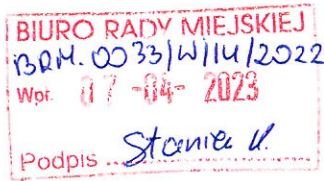 BIURO RADY MIEJSKIEJ
BRM.0033/W/14/2022
Wpł. 07 -04- 2023
Podpis ...........